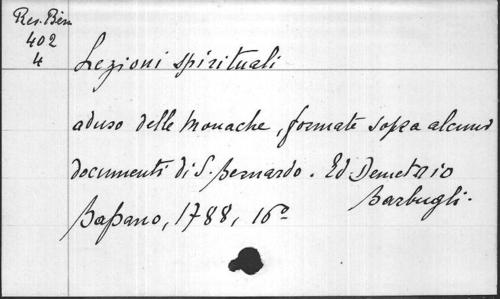 Res. Bem
402
4
Lezioni spirituali
aduso delle Monache, formate sopra alcuni
documenti di S. Bernardo. Ed. Demetrio
Barbugli.
Baſsano, 1788, 16º